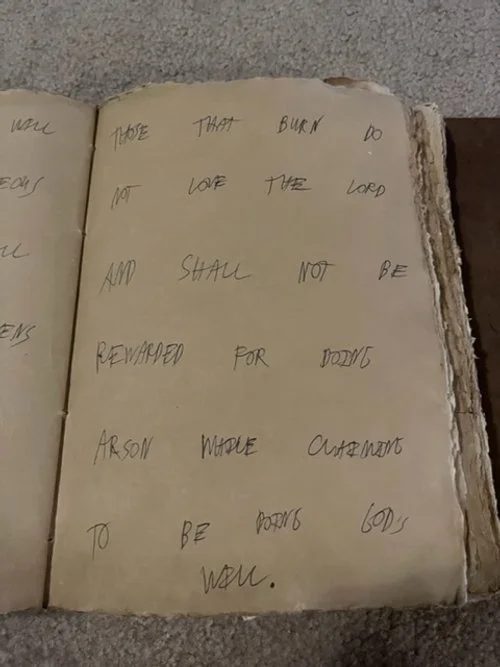 WILL
EOUS
LL
ENS
THOSE THAT BURN DO
NOT LOVE THE LORD
AND SHALL NOT BE
REWARDED FOR DOING
ARSON WHILE CLAIMING
TO BE DOING GOD'S
WILL.